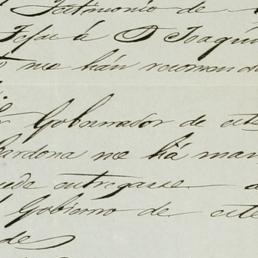 Testimonio de
Fefue á D Joaquín
me hán recomend
Gobernador de este
Cardona me há man
uede entregarse
Gobierno de este
de